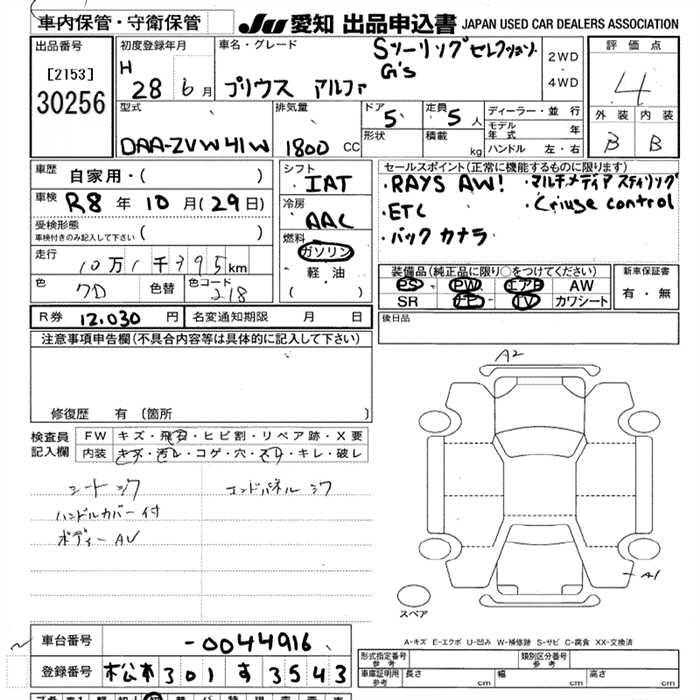 車内保管・守衛保管
JU 愛知 出品申込書 JAPAN USED CAR DEALERS ASSOCIATION
出品番号
[2153]
30256
初度登録年月
H 28 6 月
車名・グレード
Sツーリングセレクション
G's
プリウス アルファ
2WD
・
4WD
評価点
4
外装 内装
B B
型式
DAA-ZVW41W
排気量
1800 CC
ドア 5
形状
定員 5 人
積載 kg
ディーラー・並行
モデル年式 年
ハンドル 左・右
車歴 自家用・( )
車検 R8 年 10 月 (29日)
受検形態
車検付きのみ記入して下さい ( )
走行 10万1千395km
色 クロ 色替 色コード 218
シフト
IAT
冷房
AAC
燃料
ガソリン
・
軽油
( )
セールスポイント(正常に機能するものに限ります)
・RAYS AW! ・マルチメディア スティリング
・ETC ・Criuse control
・バック カメラ
装備品(純正品に限り○をつけてください)
PS PW エアB AW
SR ナビ TV カワシート
新車保証書
有・無
R券 12,030 円 名変通知期限 月 日
後日品
注意事項申告欄(不具合内容等は具体的に記入して下さい)
修復歴 有 (箇所 )
検査員記入欄
FW キズ・飛石・ヒビ割・リペア跡・X要
内装 キズ・汚レ・コゲ・穴・スレ・キレ・破レ
シート シワ エンドパネル シワ
ハンドルカバー付
ボディー AU
A2
A1
スペア
A-キズ E-エクボ U-凹み W-補修跡 S-サビ C-腐食 XX-交換済
車台番号 -0044916
登録番号 松本 301 す 3543
形式指定番号 参考
類別区分番号 参考
車庫証明用 参考 長さ cm 幅 cm 高さ cm